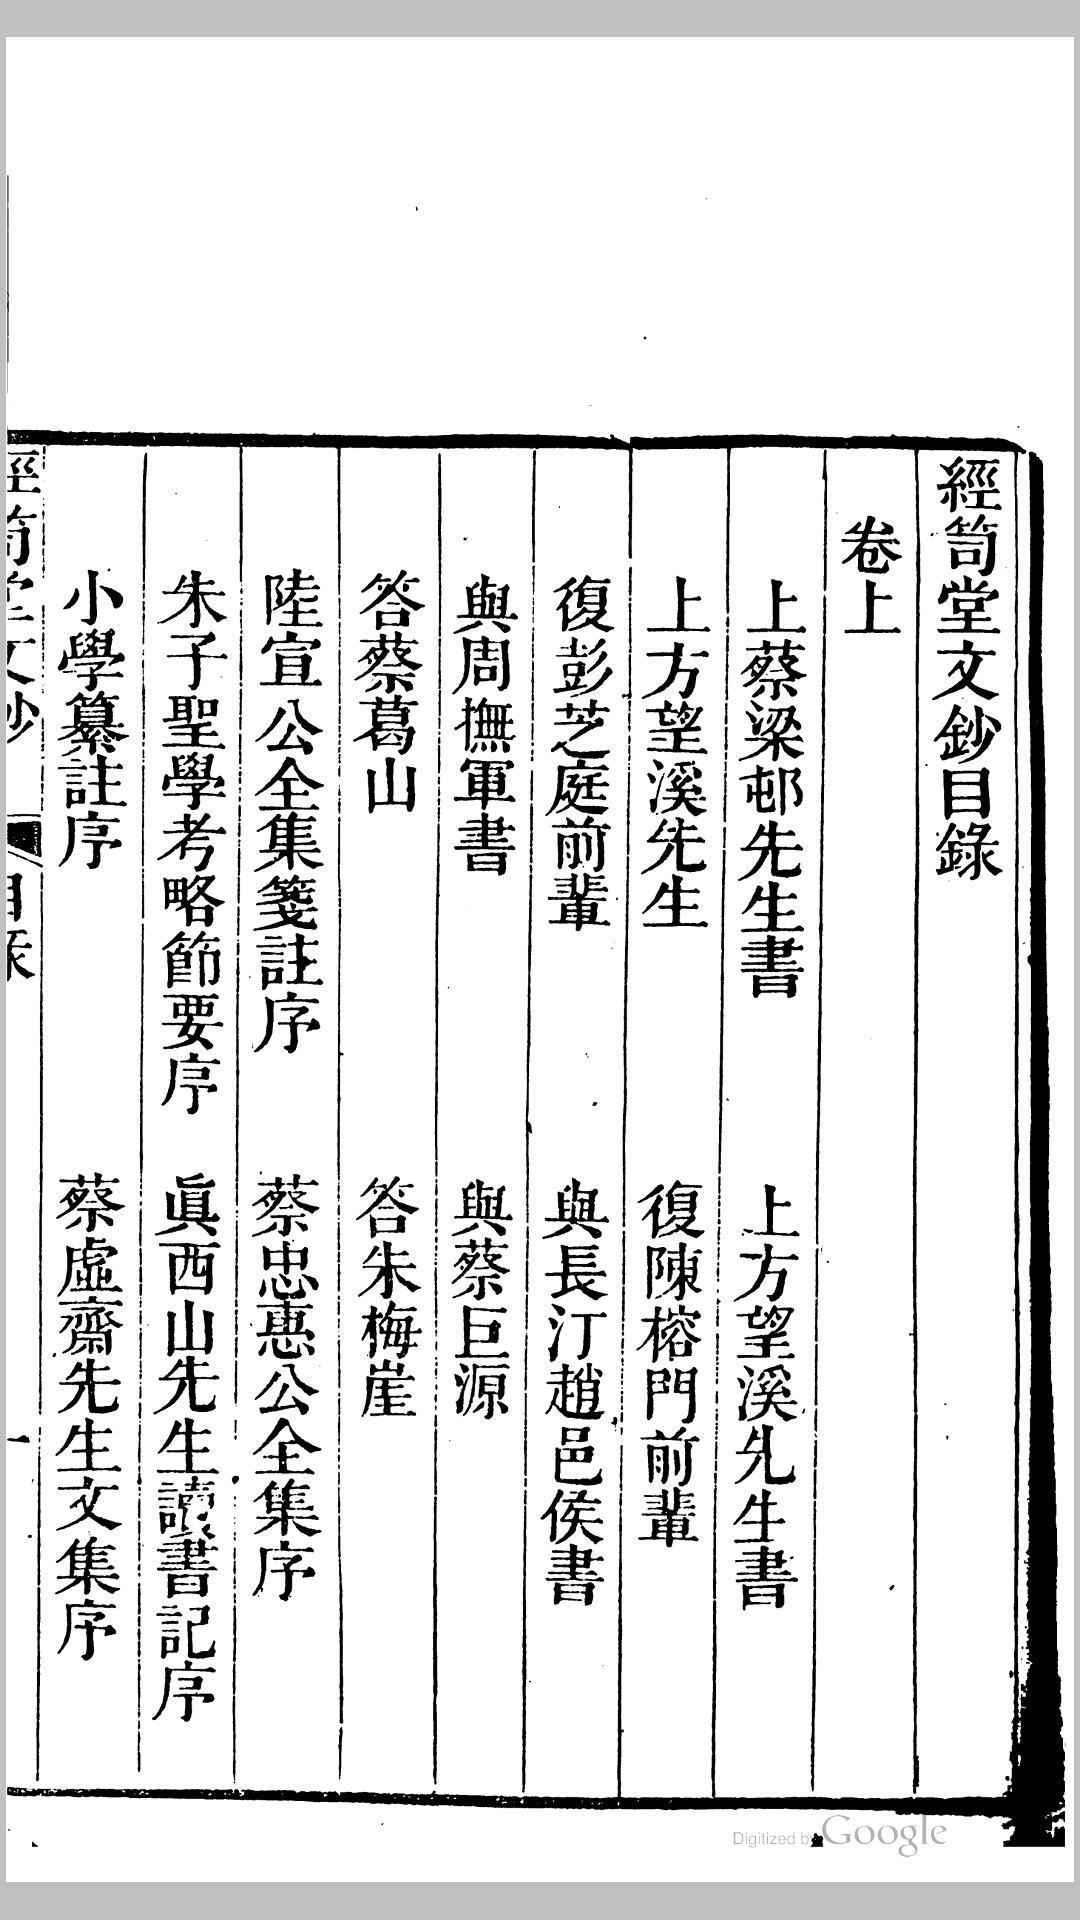 經笥堂文鈔目錄
卷上
上蔡梁邨先生書　上方望溪先生書
上方望溪先生　復陳榕門前輩
復彭芝庭前輩　與長汀趙邑侯書
與周撫軍書　與蔡巨源
答蔡葛山　答朱梅崖
陸宣公全集箋註序　蔡忠惠公全集序
朱子聖學考略節要序　眞西山先生讀書記序
小學纂註序　蔡虛齋先生文集序
經笥堂文鈔　目錄　一
Digitized by Google